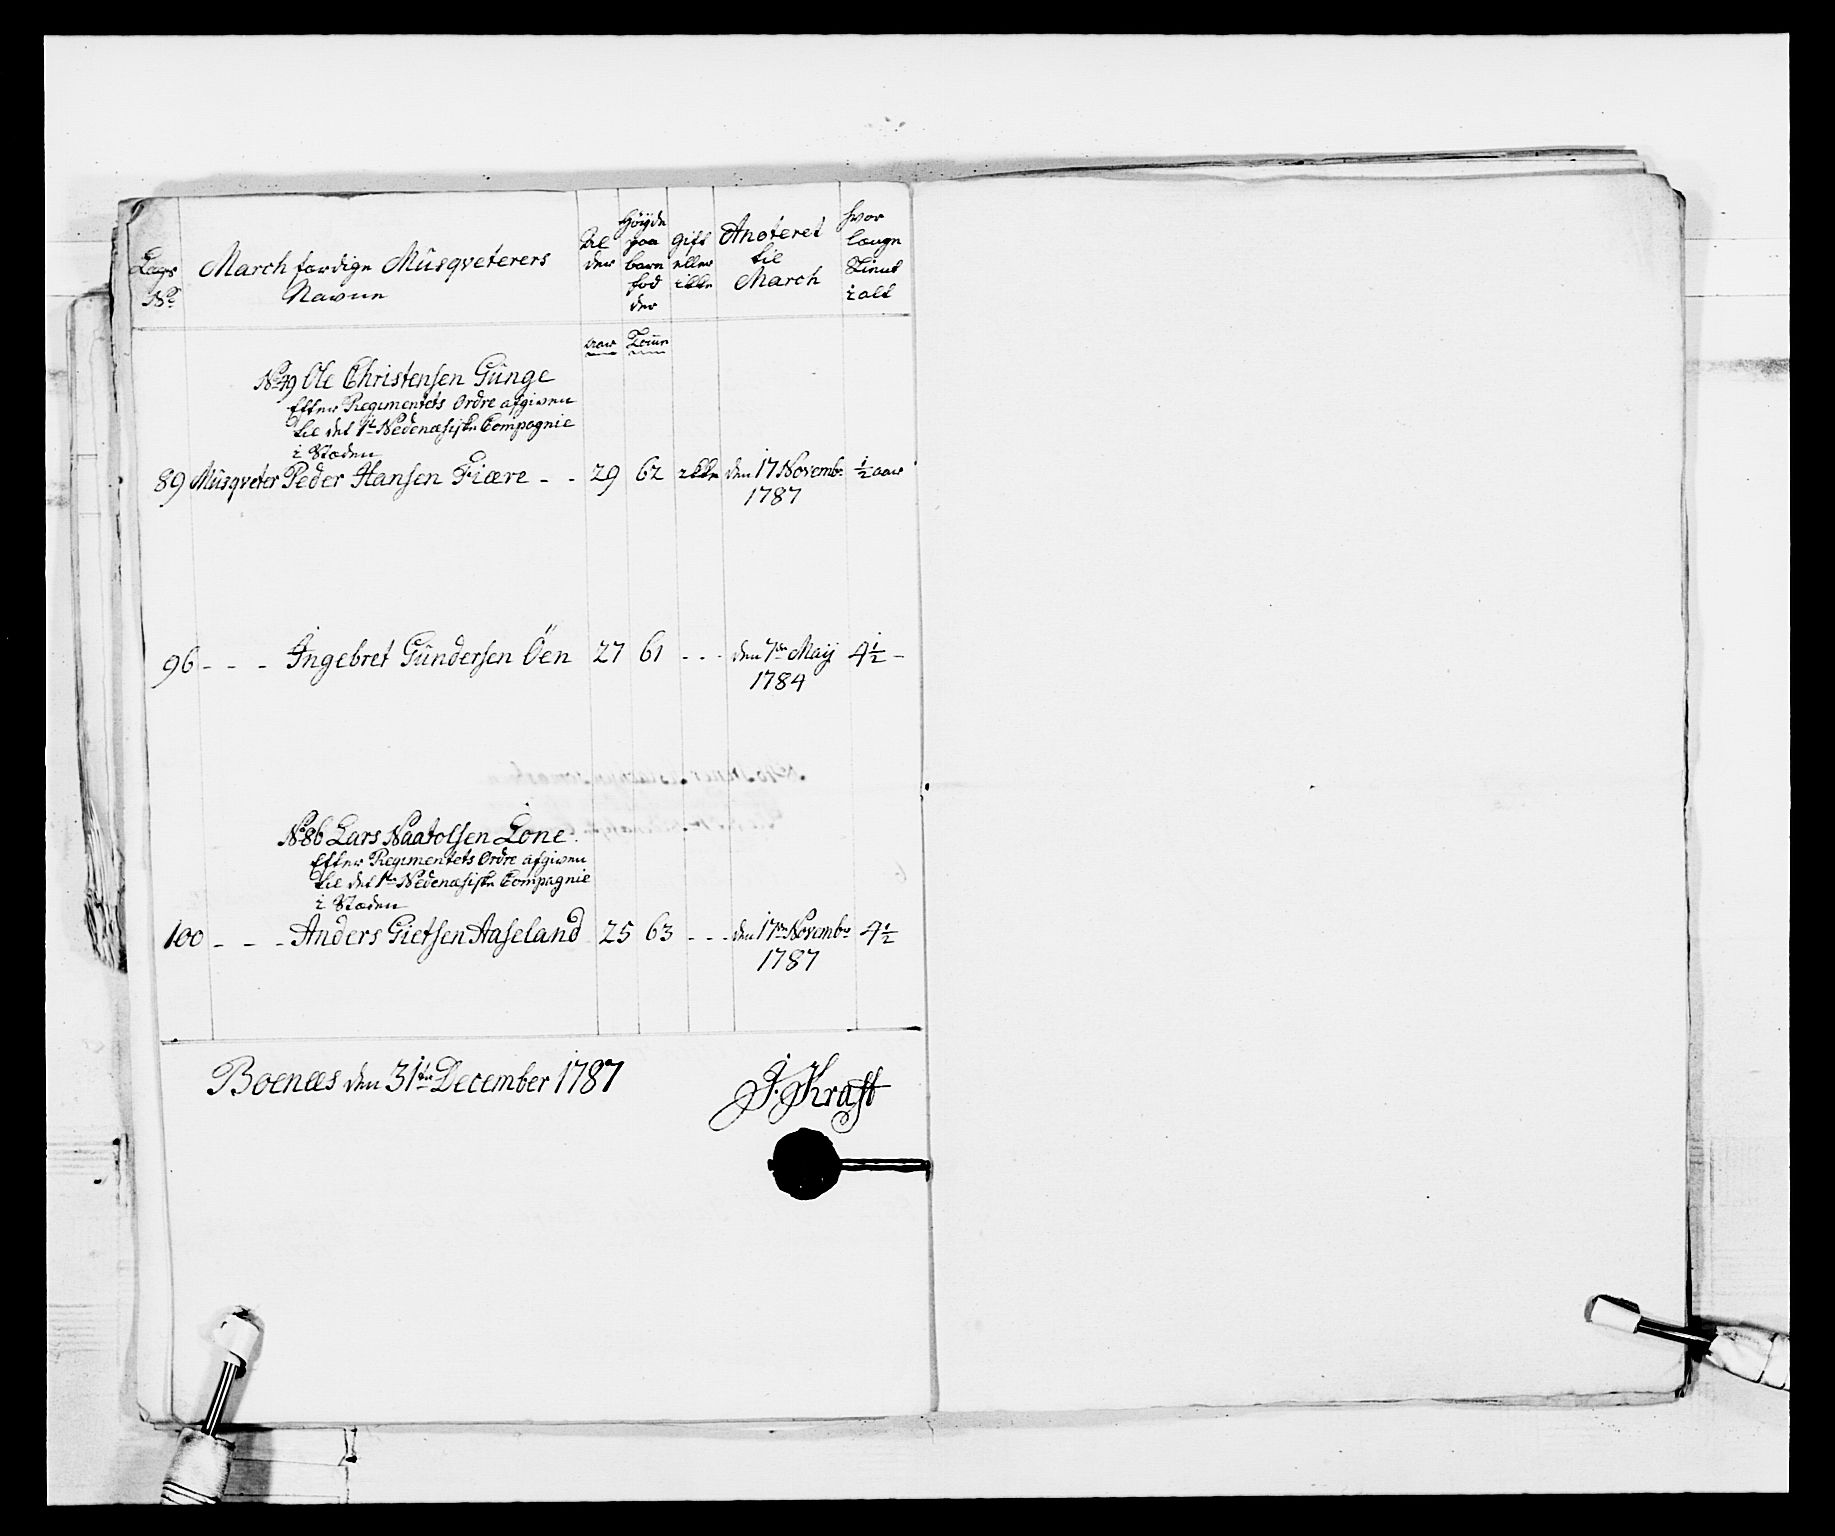 Lægs No
March færdige Musqveterers Navne
Al der
Höyde paa bare fod der
gift eller ikke
Anoteret til March
hvor længe Tient i alt
aar Tomr
No 49 Ole Christensen Günge
Efter Regimentets Ordre afgiven
til det 1te Nedenæsiske Compagnie
i Stæden
89 Müsqveter Peder Hansen Fiære - - 29 62 ikke den 17 Novembr 1/2 aar
1787
96 - - - Ingebret Gündersen Öen 27 61 - - - den 7de Maij 4 1/2 -
1784
No 86 Lars Naatolsen Lone.
Efter Regimentets Ordre afgiven
til det 1te Nedenæsiske Compagnie
i Stæden
100 - - - Anders Gietsen Aaseland 25 63 - - - den 17de Novembr 4 1/2
1787
Boenæs den 31te December 1787
J. Kraft